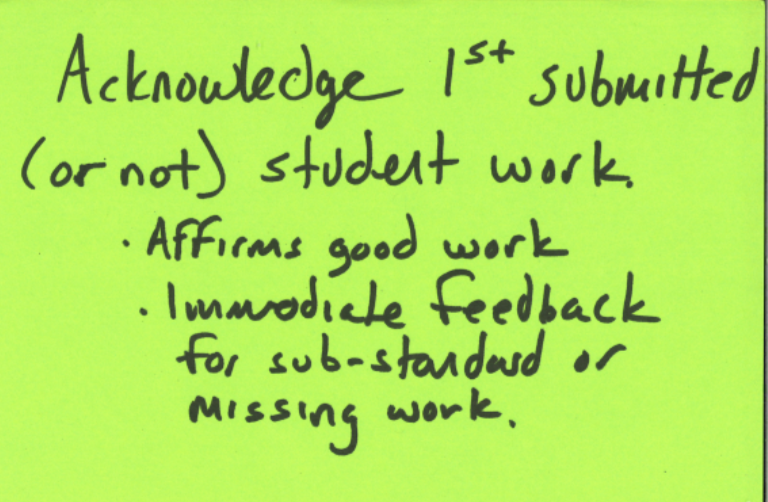 Acknowledge 1st submitted
(or not) student work.
· Affirms good work
· Immediate feedback
for sub-standard or
missing work.